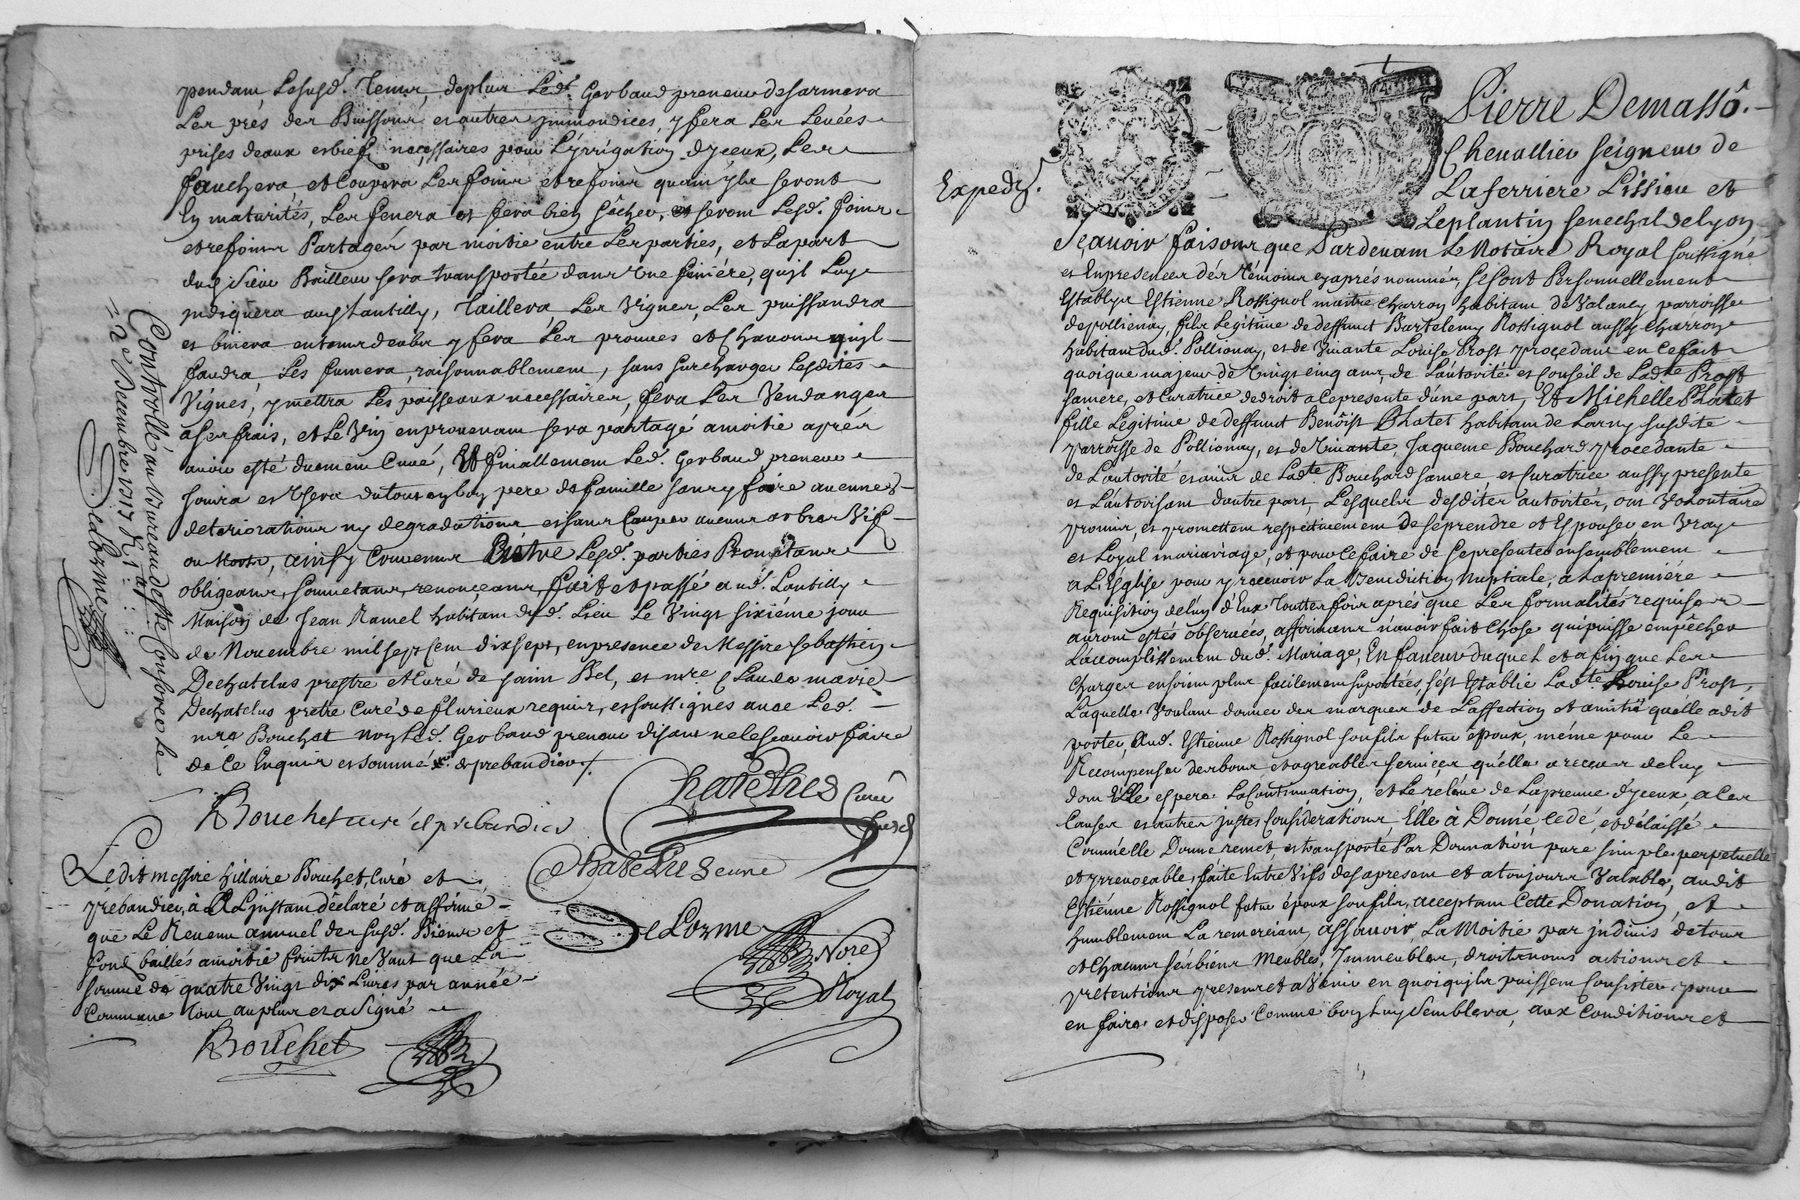 pendant Lesusd. Temps, deplus Led. Gerbaud preneur desarmera
Les prés des Buissons et autres jmmondices, y fera Les Levées
prises deaux et bief necessaires pour L'yrrigation dyceux, Les
fauchera et Coupera Les foins et refoins quant yls seront
En maturités, Les fenera et fera bien sécher, et seront Lesd. foins
et refoins Partagés par moitié entre Les parties, et La part
dud. sieur Bailleur sera transportée dans Une feniére, qu'jl Luy
jndiquera aud. Lantilly, Taillera Les Vignes, Les puissandra
et binera en temps deubs y fera Les prouves et Chavons qu'jl
faudra, Les fumera, raisonnablement, sans surcharger Lesdites
Vignes, y mettra Les paisseaux necessaires, fera Les Vendanges
a ses frais, et Le Vin en provenant sera partagé a moitié aprés
avoir esté duement Cuvé, Et finallement Led. Gerbaud preneur
jouira et Usera du tout en bon pere de famille sans y faire aucunes
deteriorations ny degradations et sans Couper aucuns arbres Vifs
ou Morts, ainsy Convenus Entre Lesd. parties Promettans
obligeans, soumettans, renonceans, fait et passé aud. Lantilly
Maison de Jean Ramel habitant dud. Lieu Le Vingt sixième jour
de Novembre mil sept Cent dixsept, en presence de Messire Sebastien
Dechatelus prestre et Curé de saint Bel, et mre Claude marie
Dechatelus pretre Curé de fleurieux requis, et soussignés avec Led.
mre Bouchet non Led. Gerbaud preneur disant ne le scavoir faire
de Ce Enquis et sommé et prebandier
Controllé au Bureau de ste Consorce le
12e Decembre 1717 R.
Delorme
Bouchet curé et prebandier
Chatelus Curé
Chatelus Jeune
DeLorme
Nore
Royal
Ledit messire hillaire Bouchet, Curé et
prebandier, à A Ljnstant déclaré et affirmé
que Le Revenu annuel des susd. Biens et
fonds baillés a moitié fruits ne Vaut que La
somme de quatre Vingt dix Livres par année
Commune Tout au plus et a Signé
Bouchet
Expedié.
Pierre Demassô.
Chevallier seigneur de
Laferriere Lissieu et
Leplantin senechal de Lyon
Sçavoir faisons que Pardevant Le Notaire Royal soussigné
et En presence des Témoins cy aprés nommés, se sont Personnellement
Establys Estienne Rossignol maitre Charron habitant de Valancy parroisse
de pollienay, fils Legitime de deffunct Bartelemy Rossignol aussy Charron
habitant dud. Pollionay, et de Vivante Louise Prost procedant en Ce fait
quoique majeur de Vingt cinq ans, de L'autorité et Conseil de Ladte Prost
sa mere, et Curatrice de droit a Ce presente d'une part, Et Michelle Phatet
fille Legitime de deffunct Benoist Phatet habitant de Larny susdite
parroisse de Pollionay, et de Vivante Jaqueme Bouchard procedante
de L'autorité et avis de Ladte Bouchard sa mere, et curatrice aussy presente
et L'autorisant d'autre part, Lesquels desdites autorités, ont Volontaire
promis, et promettent respectivement De se prendre et Espouser en Vray
et Loyal mariavage, et pour Ce faire de se presenter ensemblement
a L'Eglise pour y recevoir La Benediction Nuptiale, a La premiére
Requisition de L'un d'Eux Toutte fois aprés que Les formalités requises
auront estés observées, affirmans n'avoir fait Chose qui puisse empêcher
L'accomplissement dud. Mariage, En faveur duquel et a fin que Les
Charges en soint plus facilement suportées, s'est Establie Ladte Louise Prost,
Laquelle Voulant donner des marques de L'affection et amitié quelle a dit
porter, Aud. Estienne Rossignol son fils futur époux, même pour Le
Recompenser des bons et agreables services qu'elle a receus de luy
dont Elle espere La Continuation, et Le reléve de La preuve d'yceux, a Ces
Causes et autres justes Considérations, Elle à Donné Cedé, et délaissé
Comm'elle Donne remet, et transporte Par Donnation pure simple, perpetuelle
et yrrevocable, faite Entre Vifs des a present et a toujours Valable, audit
Estienne Rossignol futur époux son fils, acceptant Cette Donation, et
humblement La remerciant, assavoir, La Moitié par jndivis de tous
et Chacuns ses biens Meubles, Jmmeubles, droits noms actions et
pretentions presents et a Venir en quoy qu'jls puissent Consister, pour
en faire et disposer Comme bon Luy Semblera, aux Conditions et